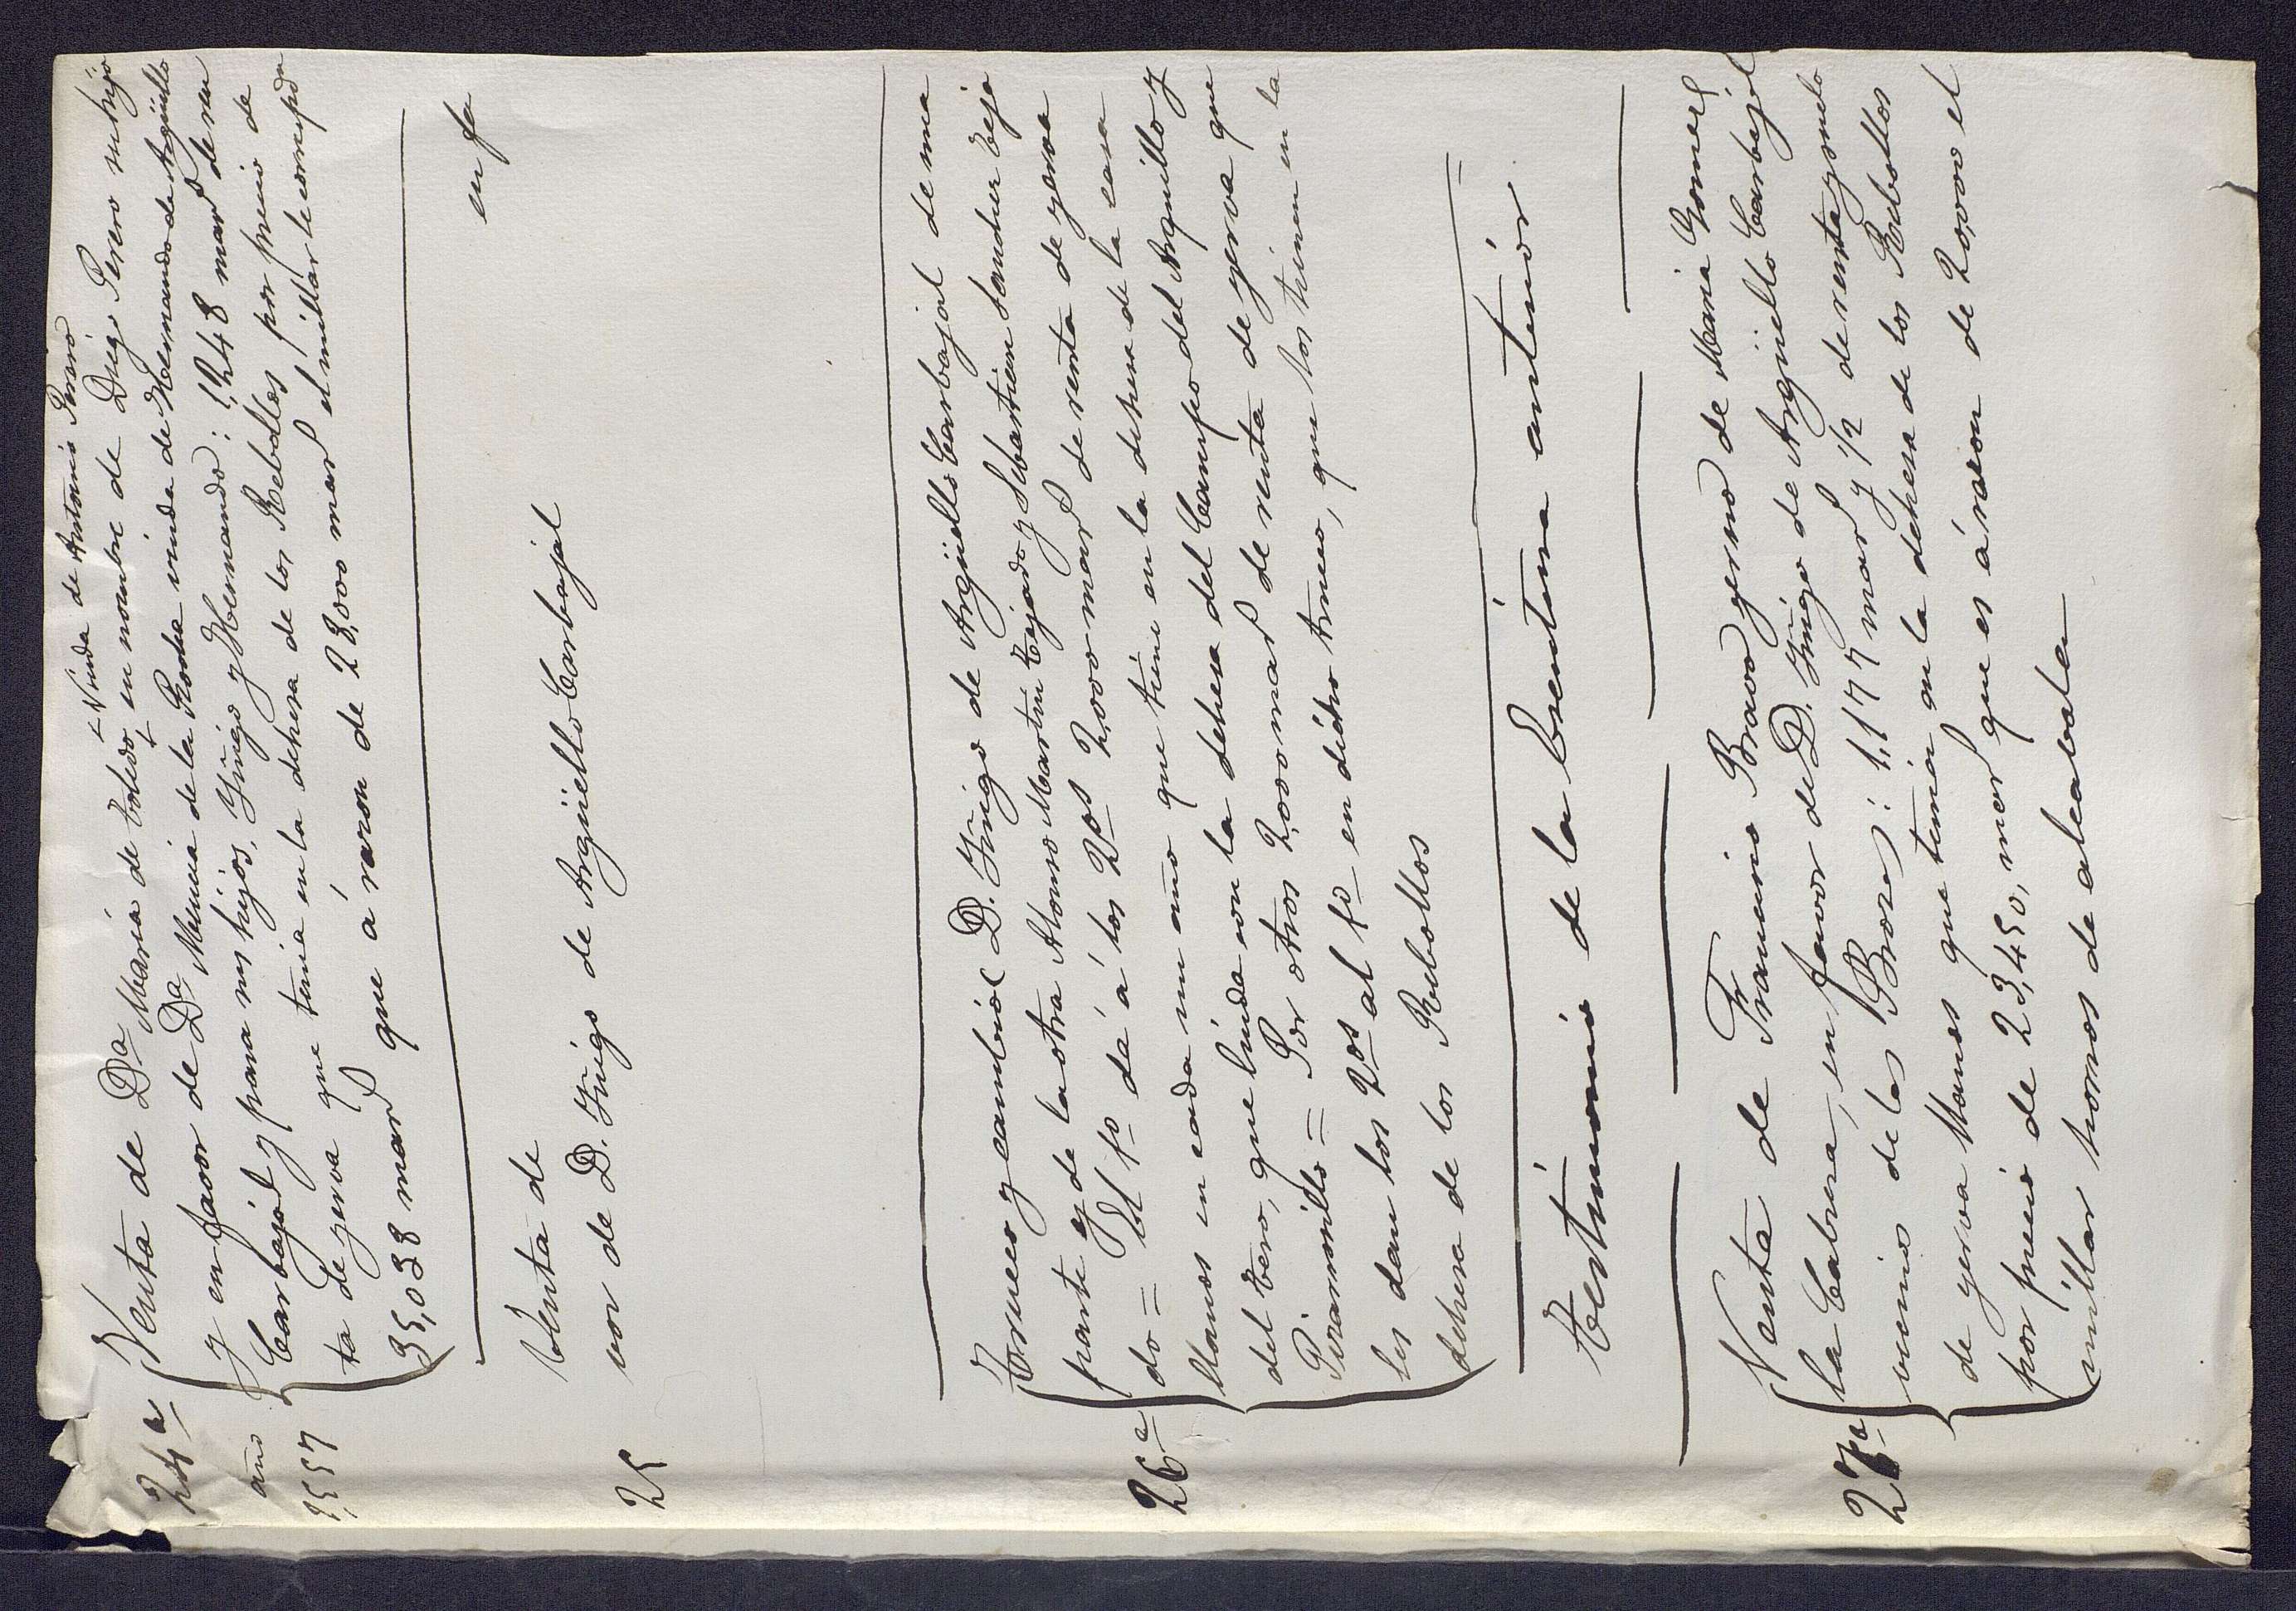 Viuda de Antonio Perero
24ª Venta de Dª Maria de Toledo en nombre de Diego Perero su hijo
y en favor de Dª Mencia de la Rocha viuda de Hernando de Argüello
año Carbajal y para sus hijos, Yñigo y Hernando: 1248 mars de ren
1,557 ta de yerva que tenia en la dehesa de los Rebollos por precio de
35,038 mars que á razon de 28,000 mars el millar le correspde
25 Venta de en fa
vor de D. Yñigo de Argüello Carbajal
26ª Trueco y cambio D. Yñigo de Argüello Carbajal de una
parte y de la otra Alonso Martin Tejado y Sebastian Sanchez Teja
do = El 1º dá á los 2os 2,000 mars de renta de yerva
llanos en cada un año que tiene en la dehesa de la casa
del Tero, que linda con la dehesa del Campo del Arquillo y
Piramillo = Por otros 2,000 mars de renta de yerva que
les dan los 2os al 1º en dicho trueco, que los tienen en la
dehesa de los Rebollos
Testimonio de la Escritura anterior
27ª Venta de Francisco Bravo yerno de Maria Gomez
la Cabrera, en favor de D. Yñigo de Argüello Carbajal
vecino de las Brozas: 1,177 mars y 1/2 de renta y suelo
de yerva llanos que tenia en la dehesa de los Rebollos
por precio de 23,450, mars que es á razon de 20,000 el
millar horros de alcabala